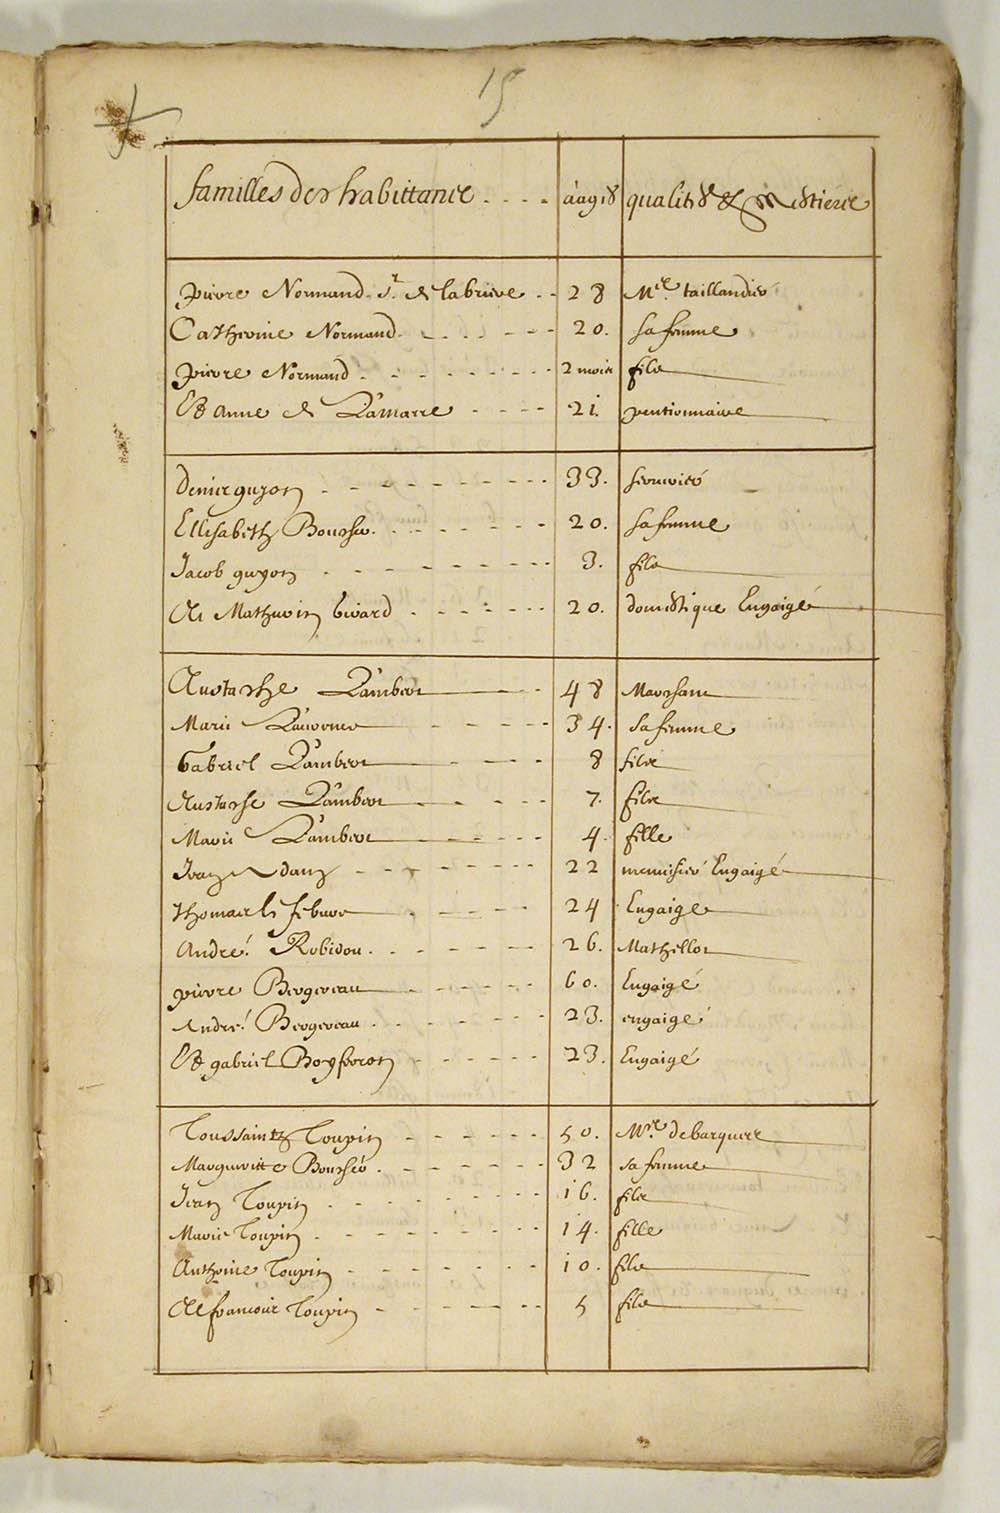 15
familles des habittans .... aages qualités & mestiers
pierre Normand Sr. de labriere .. 28 Mre. taillandier
Catherine Normand 20. sa femme
pierre Normand 2 mois fils
Et Anne de Lamarre 21. pentionnaire
denis guyon 33. serurier
Ellisabeth Boucher 20. sa femme
Jacob guyon 3. fils
Et Mathurin 20. domestique Engaigé
Eustache Lambert 48 Marchant
Marie Laurence 34. sa femme
Gabriel Lambert 8 fils
Eustache Lambert 7. fils
Marie Lambert 4. fille
Jean Adam 22 menuisier Engaigé
thomas le febure 24 Engaigé
André Robidou 26. Mathellot
pierre Bergereau 60. Engaigé
André Bergereau 23. engaigé
Et gabriel 23. Engaigé
Toussaintz Toupin 50. Mre. de barques
Marguerite Boucher 32 sa femme
Jean Toupin 16. fils
Marie Toupin 14. fille
Anthoine Toupin 10. fils
Et francois Toupin 5 fils